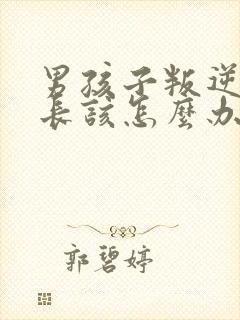 男孩子叛逆
長該怎麼办
郭碧婷